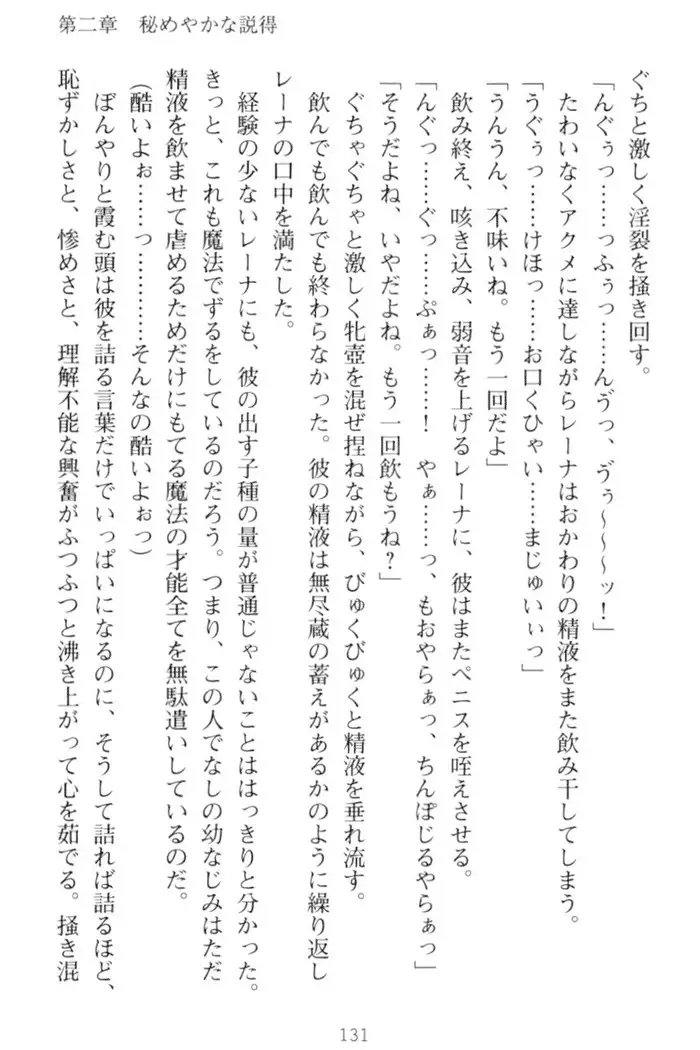 第二章　秘めやかな説得
ぐちと激しく淫裂を掻き回す。
「んぐぅっ……っふぅっ……んゔっ、ゔぅ～～～ッ！」
たわいなくアクメに達しながらレーナはおかわりの精液をまた飲み干してしまう。
「うぐぅっ……けほっ……お口くひゃい……まじゅいぃっ」
「うんうん、不味いね。もう一回だよ」
飲み終え、咳き込み、弱音を上げるレーナに、彼はまたペニスを咥えさせる。
「んぐっ……ぐっ……ぷぁっ……！　やぁ……っ、もおやらぁっ、ちんぽじるやらぁっ」
「そうだよね、いやだよね。もう一回飲もうね？」
ぐちゃぐちゃと激しく牝壺を混ぜ捏ねながら、びゅくびゅくと精液を垂れ流す。
飲んでも飲んでも終わらなかった。彼の精液は無尽蔵の蓄えがあるかのように繰り返し
レーナの口中を満たした。
経験の少ないレーナにも、彼の出す子種の量が普通じゃないことははっきりと分かった。
きっと、これも魔法でずるをしているのだろう。つまり、この人でなしの幼なじみはただ
精液を飲ませて虐めるためだけにもてる魔法の才能全てを無駄遣いしているのだ。
（酷いよぉ……っ…………そんなの酷いよぉっ）
ぼんやりと霞む頭は彼を詰る言葉だけでいっぱいになるのに、そうして詰れば詰るほど、
恥ずかしさと、惨めさと、理解不能な興奮がふつふつと沸き上がって心を茹でる。掻き混
131